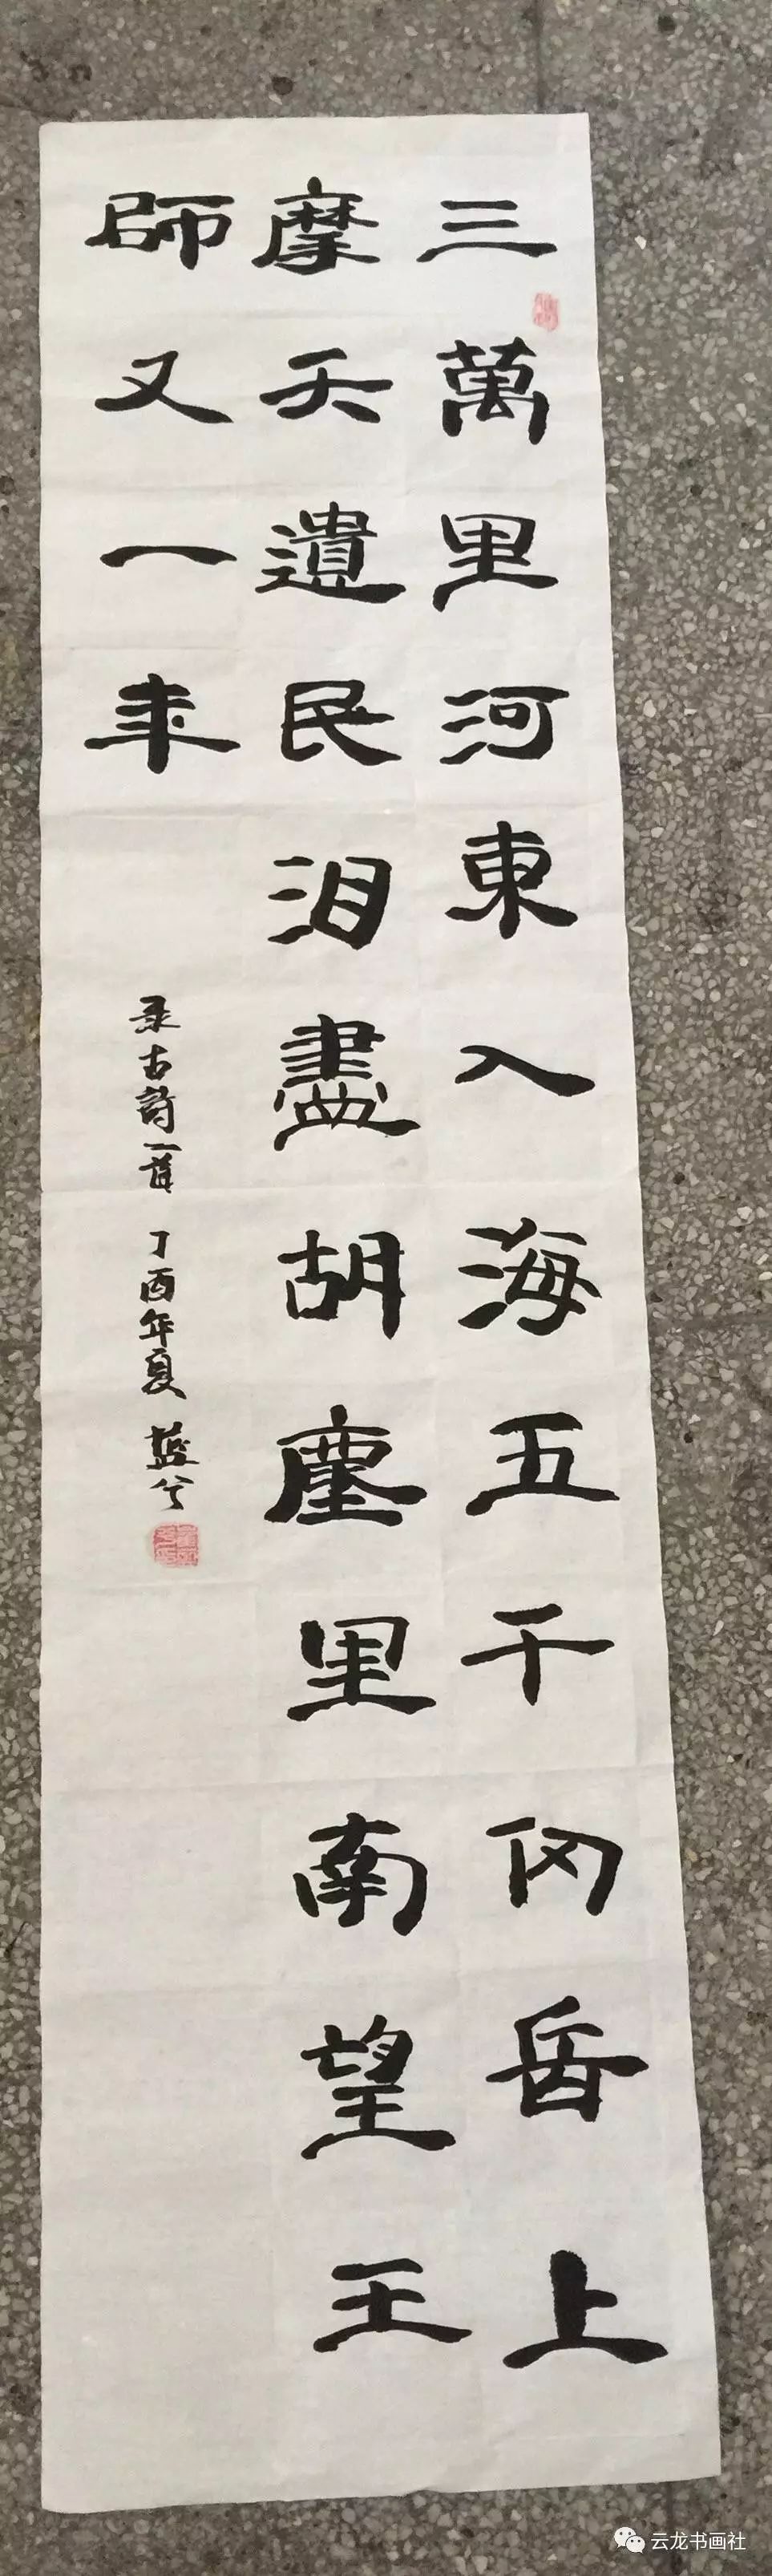 三萬里河東入海五千仞岳上
摩天遺民淚盡胡塵里南望王
師又一年
录古詩一首 丁酉年夏 藍兮
云龙书画社